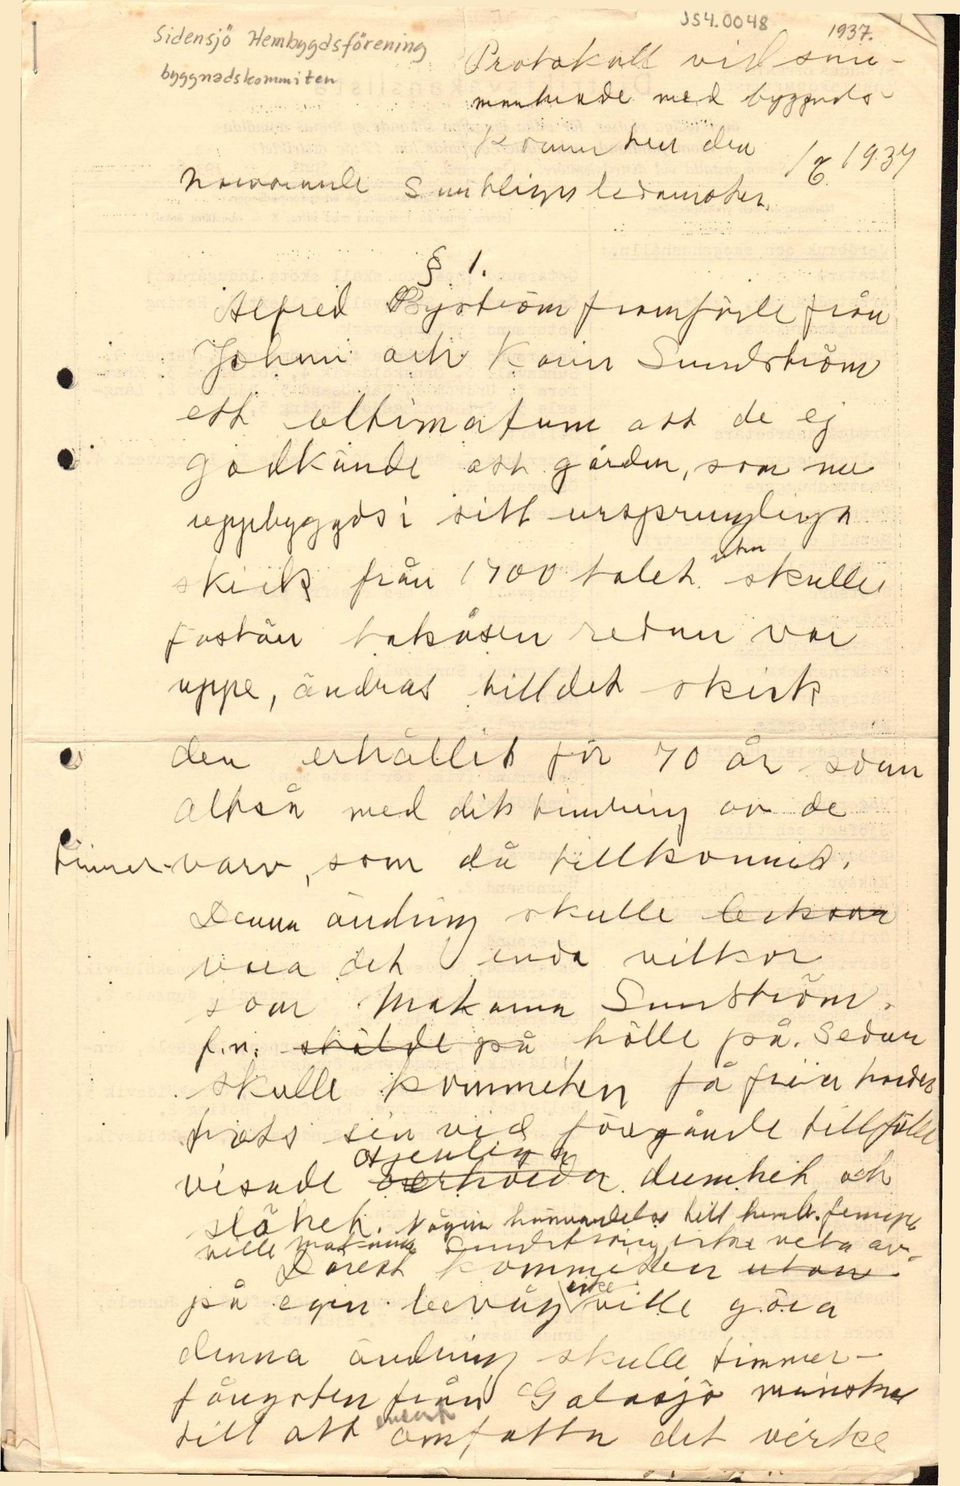 JS4.0048
Sidensjö Hembygdsförening 1937.
byggnadskommiten
Protokoll vid sam-
manträde med byggnads-
kommiten den 1/6 1937
Närvarande Samtliga ledamöter.
§ 1.
Alfred Byström framförde från
Johan och Karin Sundström
ett ultimatum att de ej
godkände att gården, som nu
uppbyggds i sitt ursprungliga
skick från 1700 talet utan skulle
fastän takåsen redan var
uppe, ändras till det skick
den erhållit för 70 år sdan
alltså med dit timring av de
timmer-varv, som då tillkommit.
Denna ändring skulle
vara det enda vilkor
som Makarna Sundström
f.n. stälde på hölle på. Sedan
skulle kommiten få fria händer
trots sin vid föregående tillfälle
visade otjenliga dumhet och
slöhet. Någon hänvändelse till hemb. fören.
ville makarna Sundström icke veta av.
Därest kommitden utan
på egen bevåg icke ville göra
denna ändring skulle timmer-
fångsten från Galasjö minska
till att endast omfatta det virke